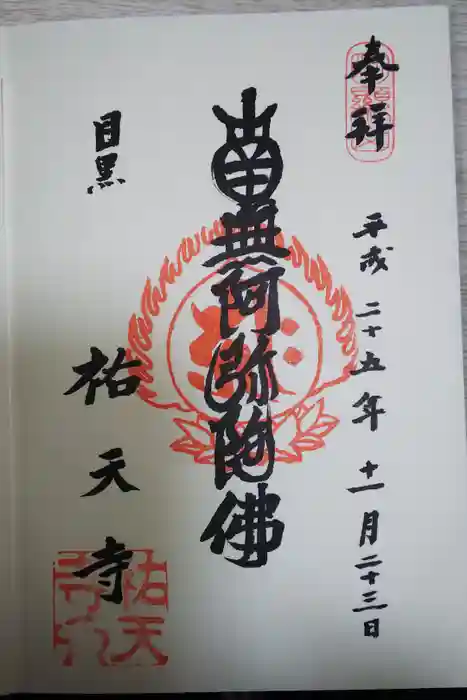 奉拜
平成二十五年十一月二十三日
南無阿弥陀佛
目黒
祐天寺
祐天寺